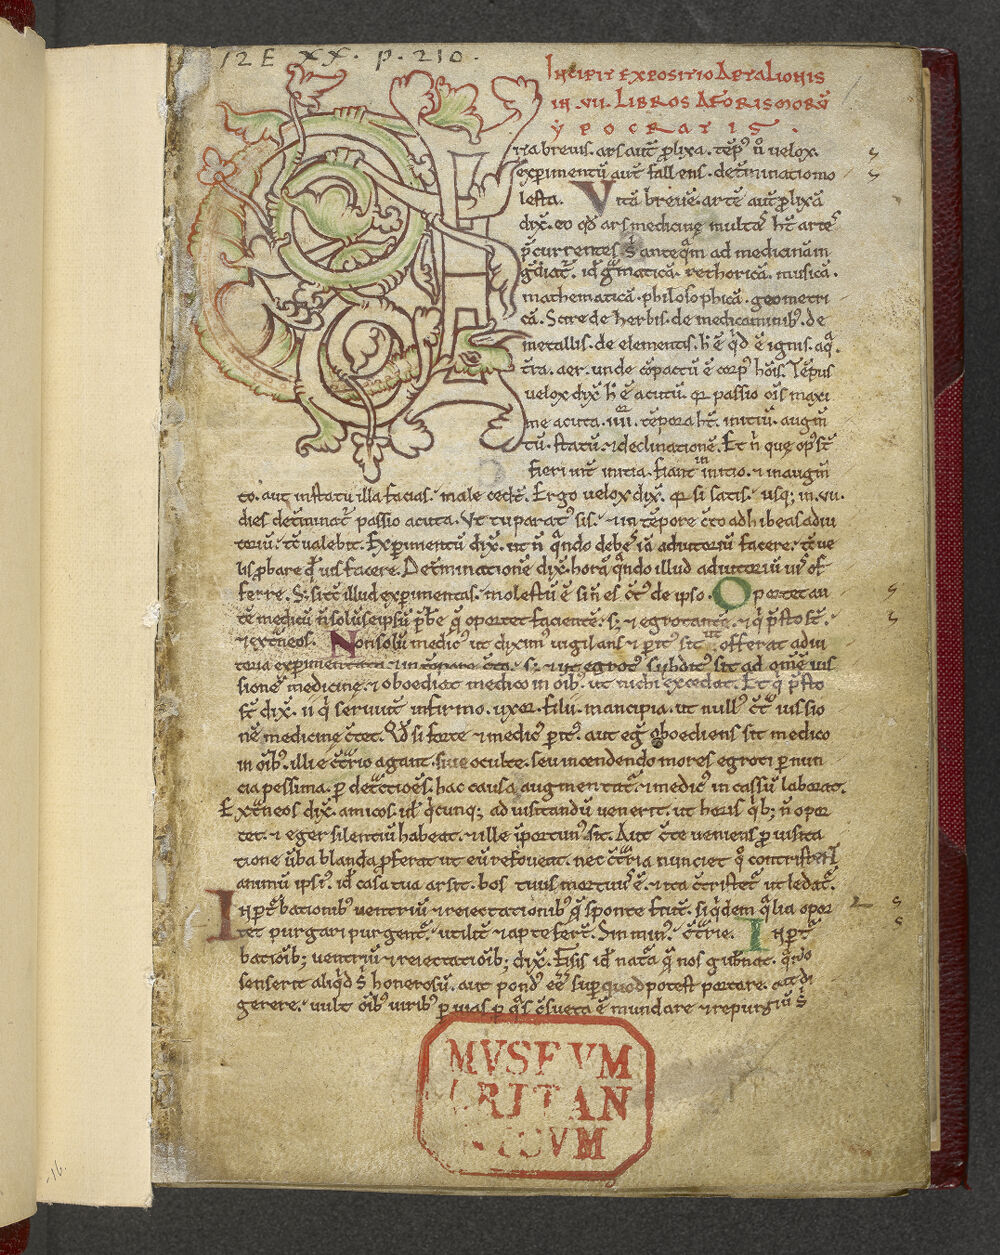 12 E XX. p. 210.
INCIPIT EXPOSITIO ARTALIONIS
IN .VII. LIBROS AFORISMORŪ
YPOCRATIS .
ita breuis. ars aut̄ ꝓlixa. tēp᷒ ū uelox.
exꝑimentū aut̄ fallens. det̄minatio mo
lesta. Vitā breuē. artē aut̄ ꝓlixā
dix̄. eo qd̄ ars medicinę multas ht̄ artes
p̄currentes ante quam ad medicinam
id ē gramaticā. rethoricā. musicā.
mathematicā. philosophicā. geometri
cā. Scire de herbis. de medicaminib᷒. de
metallis. de elementis. h̄ ē qd̄ ē ignis. aq̄.
t̄ra. aer. unde cōpactū ē corp᷒ hōis. Tēpus
uelox dix̄. h̄ ē acutū. passio maxi
me acuta .iiii. tēpora ht̄. initiū. augm̄
tū. statū. ⁊ declinationē. Et
fieri initia. fiant in initio. ⁊ in augm̄
to. aut in statu illa facias. male cedet. Ergo uelox dix̄. si satis. usq; in .vii.
dies det̄minat᷒ passio acuta. Vt tu parat᷒ sis. ⁊ in tēpore c̄to adhibeas adiu
toriū. Exꝑimentū dix̄. ut n̄ q̄ndo debes iā adiutoriū facere.
ꝓbare facere. Det̄minationē dix̄. horā q̄ndo illud adiutoriū of
ferre. illud exꝑimentas. molestū ē si n̄ es c̄t᷒ de ipso. Oportet au
tē medicū n̄ solū se ipsū oportet facientē. s; ⁊ egrotantē.
⁊ ext̄neos. Non solū medic᷒ ut diximus uigilans ⁊ ꝑit᷒ sit ut offerat adiu
toria exꝑimentata ⁊ in tēpore c̄to. s; ⁊ ut egrot᷒ subdit᷒ sit ad omē ius
sionē medicinę. ⁊ oboediat medico in oīb᷒. ut nichil excedat. Et
dix̄. seruiunt infirmo. uxor. filii. mancipia. ut null᷒ iussio
nē medicinę si forte ⁊ medic᷒ ꝑit᷒. aut eḡ oboediens sit medico
in oīb᷒. illi agant. siue occulte. seu incendendo mores egroti ꝑ nun
cia pessima. ꝑ hac causa augmentat᷒ ⁊ medic᷒ in cassū laborat.
Ext̄neos dix̄. amicos. uł q̄cunq; ad uisitandū uenerit. ut horis q̄b; n̄ opor
tet. ⁊ eger silentiū habeat. ⁊ ille īportun᷒ sit. Aut ueniens ꝓ uisita
tione ūba blanda ꝓferat ut eū refoueat. nec nunciet
animū ipsi᷒. id ē casa tua arsit. bos tuus mortuus ē. ⁊ ita ut ledat᷒.
In ꝑt̄bationib᷒ uentriū ⁊ reiectationib᷒ q̄ sponte fiunt. siq̄dem qualia opor
tet purgari purgent᷒. utilit̄ ⁊ apte fert᷒. Sin min᷒. In ꝑt̄
batiōib; uentriū ⁊ reiectatiōib; dix̄. Fisis id ē nat̄a q̄ nos gub̄nat. q̄ndo
senserit aliq̄d honerosū. aut pond᷒ eē sup quod potest portare. aut di
gerere. uult oīb᷒ uirib᷒ ꝑ uias c̄sueta ē mundare ⁊ repurgiū
MVSEVM
BRITAN
NICVM